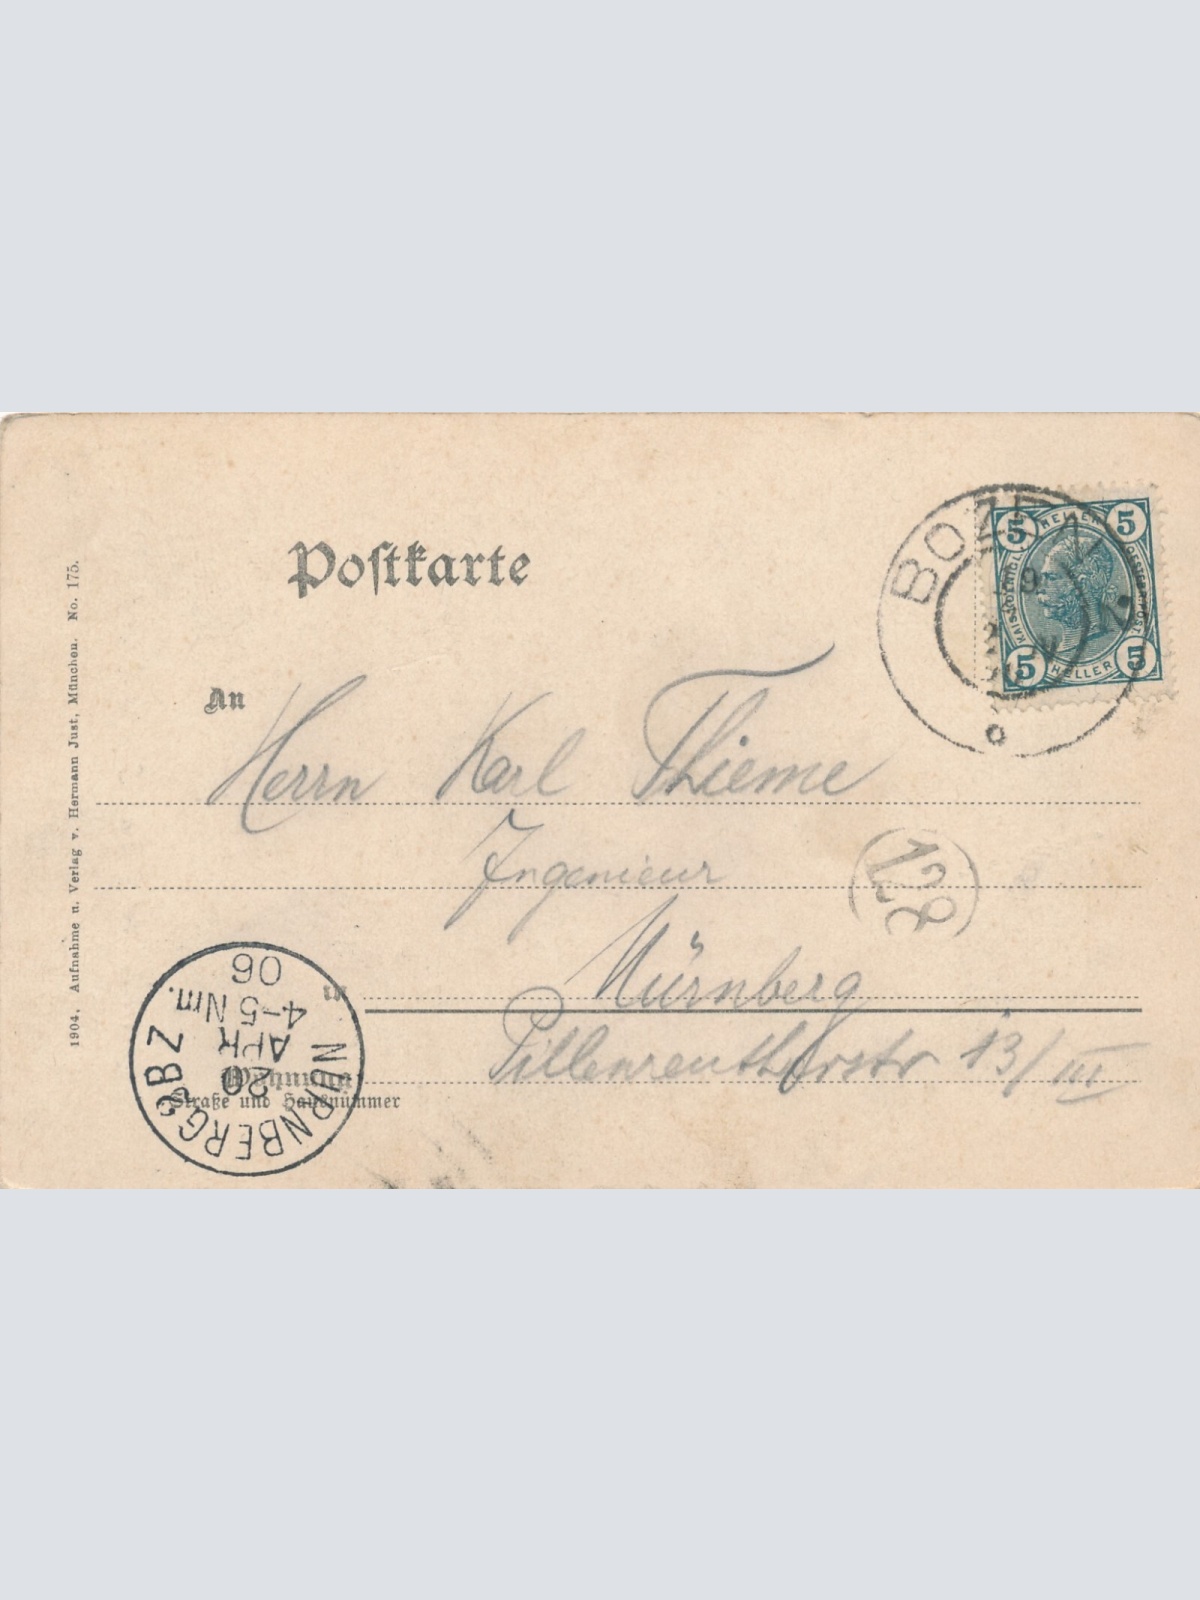 Postkarte
BOZEN
5 HELLER 5
KAIS. KOENIGL. OESTERR. POST.
5 HELLER 5
1904. Aufnahme u. Verlag v. Hermann Just, München. No. 175.
An
Herrn Karl Thieme
Ingenieur
128
in Nürnberg
Wohnung
Pillenreutherstr 13/III
Straße und Hausnummer
NÜRNBERG 2 BZ
20
APR
4-5 Nm.
06